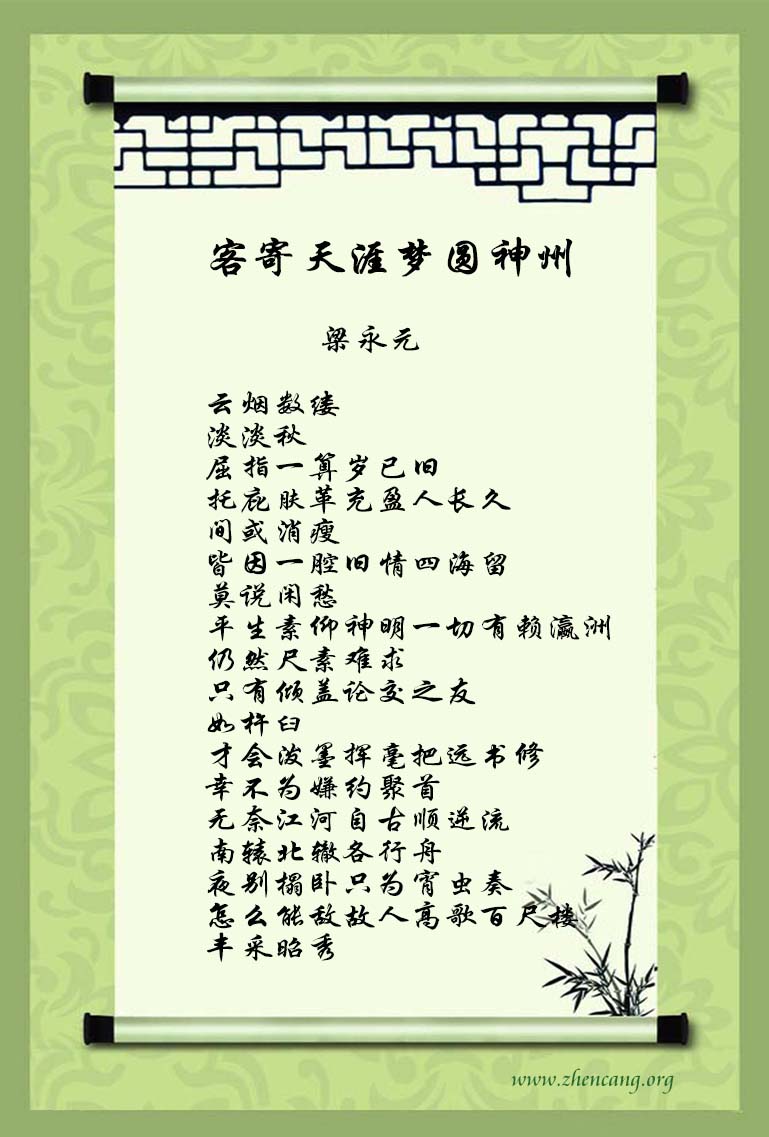 客寄天涯梦圆神州
梁永元
云烟数缕
淡淡秋
屈指一算岁已旧
托庇肤革充盈人长久
间或消瘦
皆因一腔旧情四海留
莫说闲愁
平生素仰神明一切有赖瀛洲
仍然尺素难求
只有倾盖论交之友
如杵臼
才会泼墨挥毫把远书修
幸不为嫌约聚首
无奈江河自古顺逆流
南辕北辙各行舟
夜别榻卧只为宵虫奏
怎么能敌故人高歌百尺楼
丰采昭秀
www.zhencang.org